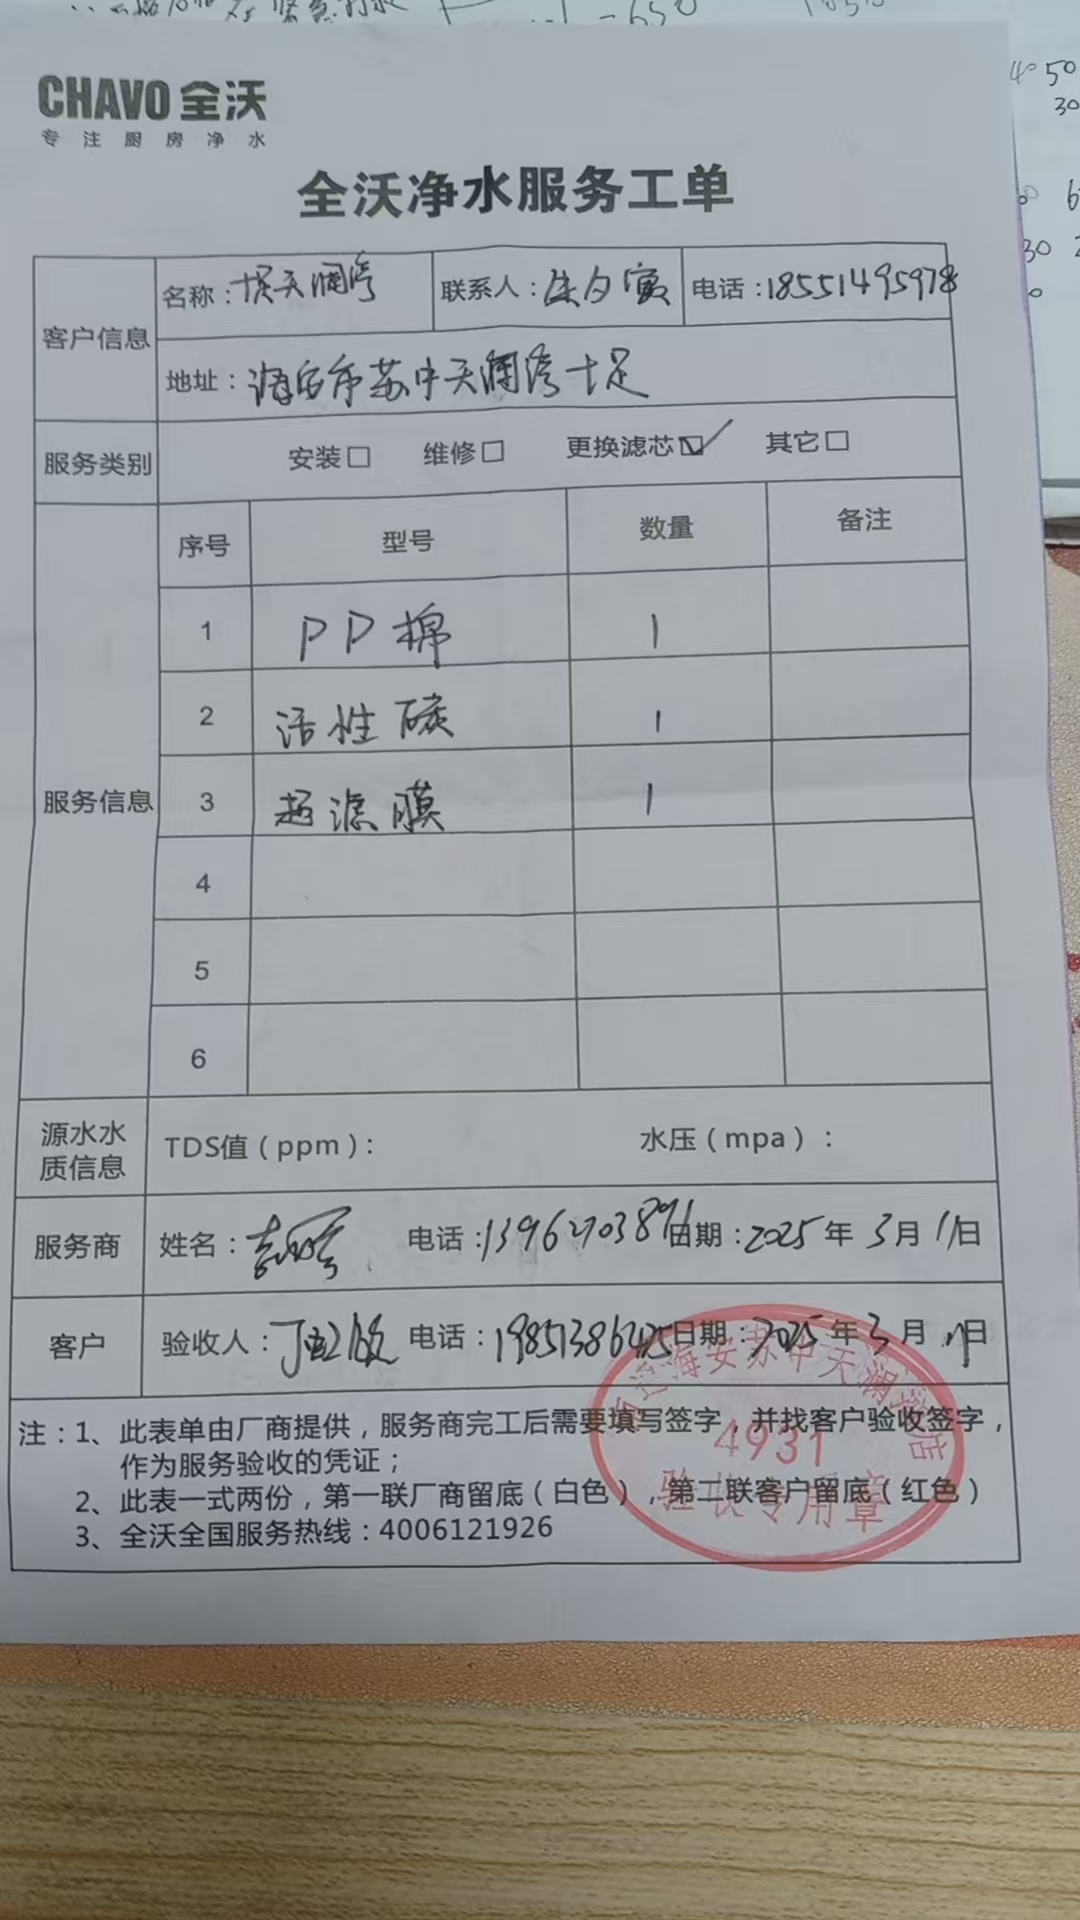 CHAVO 全沃
专注厨房净水
全沃净水服务工单
客户信息
名称： 联系人： 电话：18551495978
地址：海安市苏中天澜湾十足
服务类别
安装□ 维修□ 更换滤芯☑ 其它□
服务信息
序号 型号 数量 备注
1 PP棉 1
2 活性碳 1
3 超滤膜 1
4
5
6
源水水质信息
TDS值（ppm）： 水压（mpa）：
服务商 姓名： 电话： 日期：2025年3月11日
客户 验收人： 电话： 日期：2025年3月11日
注：1、此表单由厂商提供，服务商完工后需要填写签字，并找客户验收签字，
作为服务验收的凭证；
2、此表一式两份，第一联厂商留底（白色），第二联客户留底（红色）
3、全沃全国服务热线：4006121926
海安苏中天澜湾店
4931
验收专用章